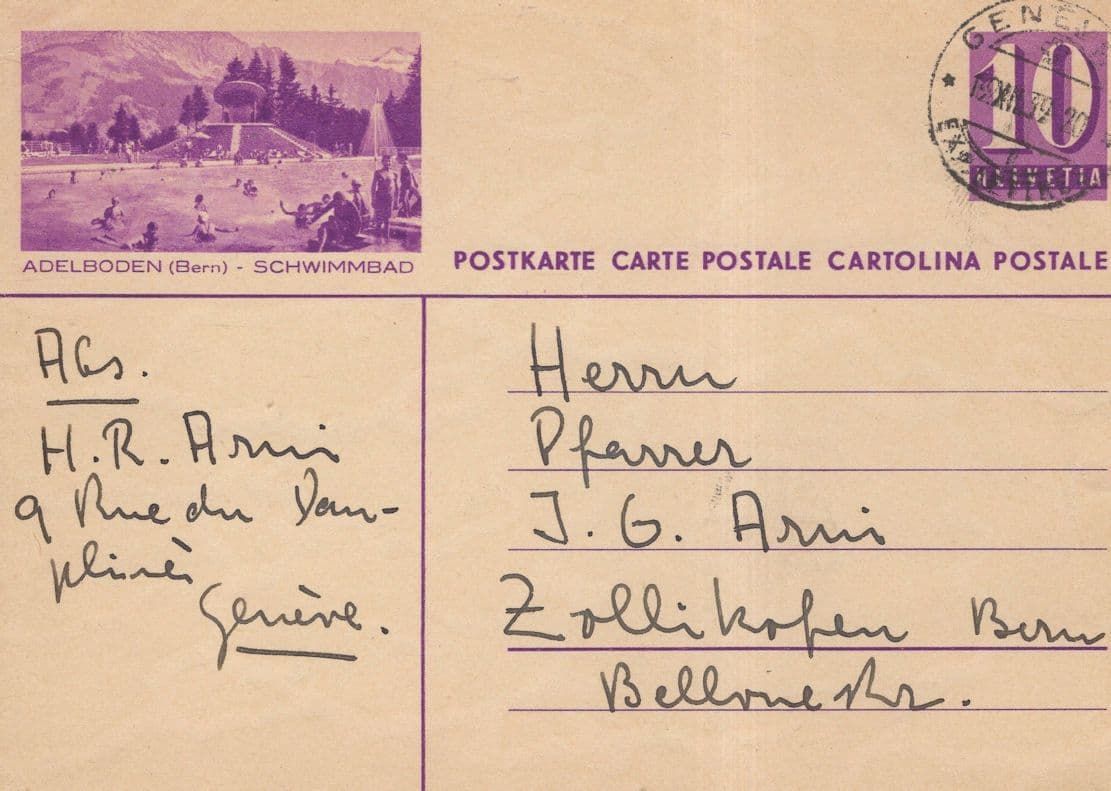 ADELBODEN (Bern) - SCHWIMMBAD
GENÈV
10
HELVETIA
POSTKARTE CARTE POSTALE CARTOLINA POSTALE
Abs.
H. R. Arni
9 Rue du Dau-
phiné
Genève.
Herrn
Pfarrer
J. G. Arni
Zollikofen Bern